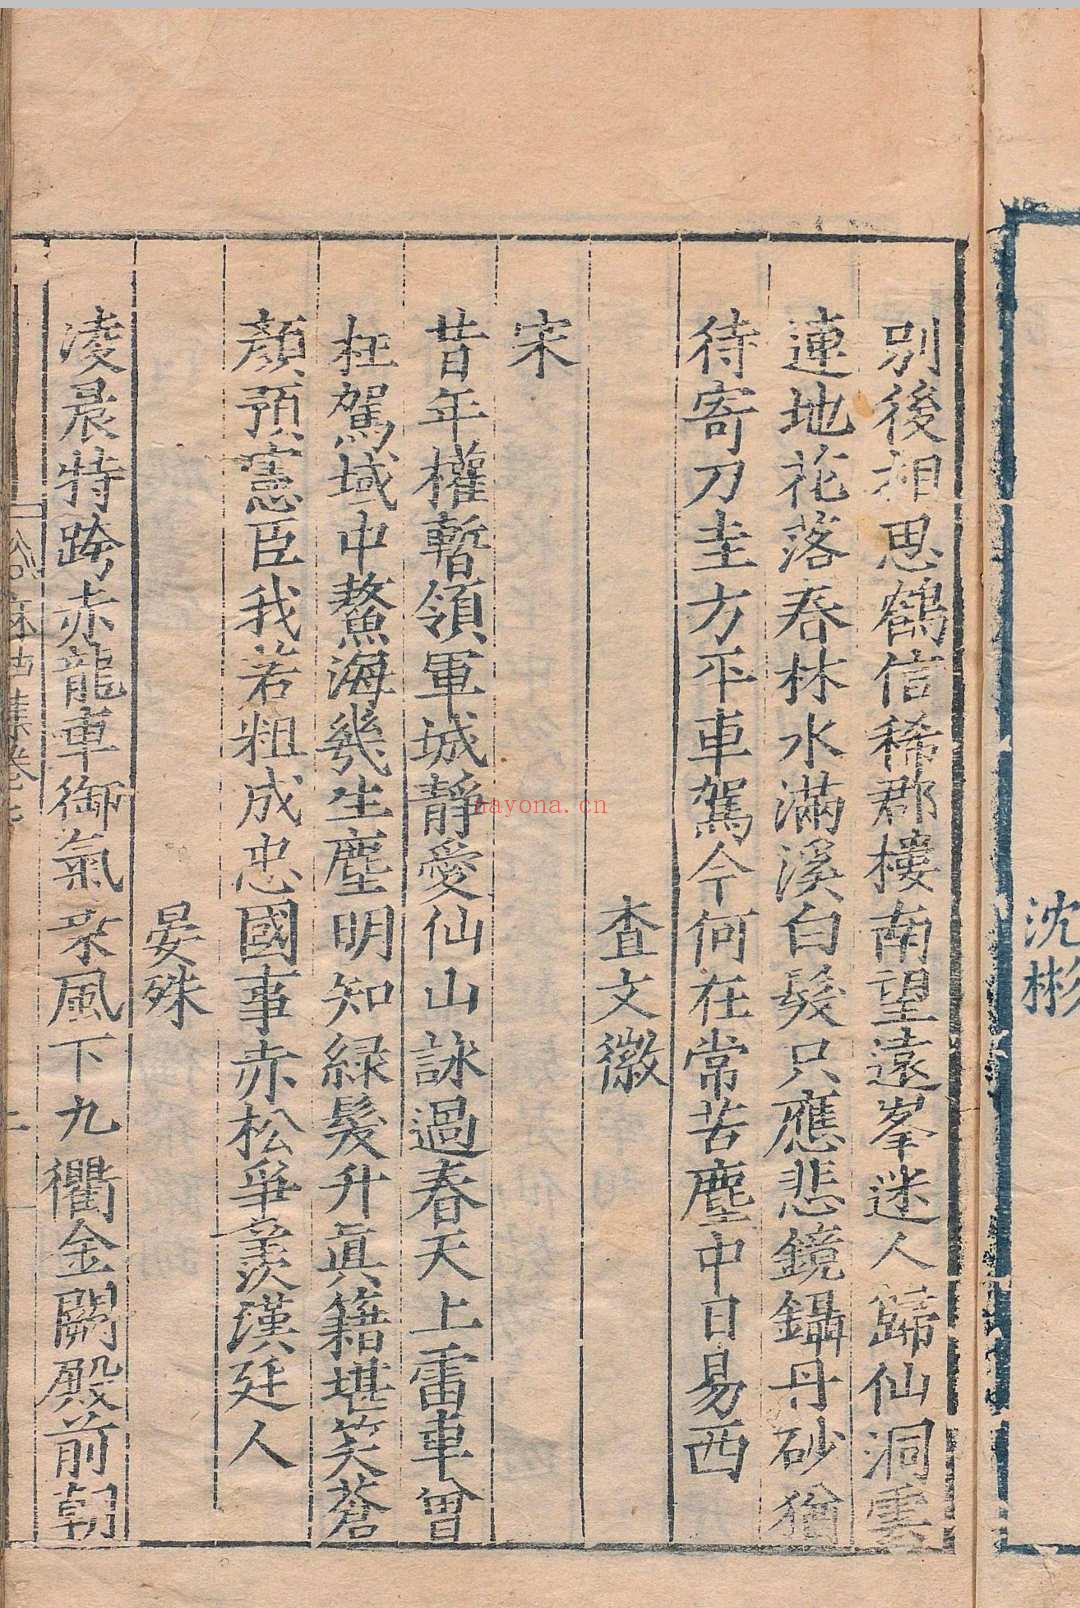 沈彬
別後相思鶴信稀郡樓南望遠峯迷人歸仙洞雲
連地花落春林水滿溪白髮只應悲鏡鑷丹砂猶
待寄刀圭方平車駕今何在常苦塵中日易西
查文徽
宋
昔年權暫領軍城靜愛仙山詠過春天上雷車曾
枉駕域中鰲海幾生塵明知綠髮升真籍堪笑蒼
顏預憲臣我若粗成忠國事赤松爭羨漢廷人
晏殊
凌晨特跨赤龍車御氣乘風下九衢金闕殿前朝
麻姑集卷七
nayona.cn